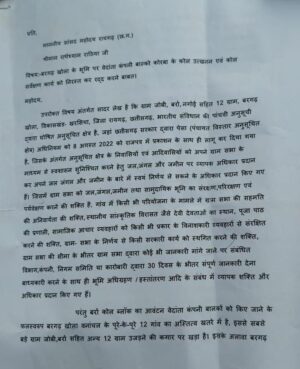 प्रति,
माननीय सांसद महोदय रायगढ़ (छ.ग.)
श्रीमान राधेश्याम राठिया जी
विषय-बरगढ़ खोला के भूमि पर वेदांता कंपनी बाल्को कोरबा के कोल उत्खनन एवं कोल
सर्वेक्षण कार्य को निरस्त कर रद्द करने बाबत।
महोदय,
उपरोक्त विषय अंतर्गत सादर लेख है कि ग्राम जोबी, बर्रा, नगोई सहित 12 ग्राम, बरगढ़
खोला, विकासखंड- खरसिया, जिला रायगढ़, भारतीय संविधान की पांचवी अनुसूची
द्वारा घोषित अनुसूचित क्षेत्र है, जहां छत्तीसगढ़ सरकार द्वारा पेसा (पंचायत विस्तार अनुसूचित
क्षेत्र) अधिनियम को 8 अगस्त 2022 को राजपत्र में प्रकाशन के साथ ही लागू कर दिया गया
है, जिसके अंतर्गत अनुसूचित क्षेत्र के निवासियों एवं आदिवासियों को अपने ग्राम सभा के
माध्यम से स्वशासन सुनिश्चित करने हेतु जल,जंगल और जमीन पर व्यापक अधिकार प्रदान
कर अपने जल जंगल और जमीन के बारे में स्वयं निर्णय ले सकने के अधिकार प्रदान किए गए
हैं। जिसमें ग्राम सभा को जल,जंगल,जमीन तथा सामुदायिक भूमि का संरक्षण,परिरक्षण एवं
पर्यवेक्षण करने की शक्ति है, गांव में किसी भी परियोजना के मामले में ग्राम सभा की सहमति
की अनिवार्यता की शक्ति,स्थानीय सांस्कृतिक विरासत जैसे देवी देवताओं का स्थान, पूजा पाठ
की प्रणाली, सामाजिक आचार व्यवहारों को किसी भी प्रकार के विनाशकारी व्यवहारों से संरक्षित
करने की शक्ति, ग्राम- सभा के निर्णय से किसी सरकारी कार्य को स्थगित करने की शक्ति,
ग्राम सभा की सीमा के भीतर ग्राम सभा द्वारा कोई भी जानकारी मांगे जाने पर संबंधित
विभाग,कंपनी, निगम समिति या कारोबारी द्वारा 30 दिवस के भीतर संपूर्ण जानकारी देना
बाध्यकारी करने के साथ ही भूमि अधिग्रहण / हस्तांतरण आदि के संबंध में व्यापक शक्ति और
अधिकार प्रदान किए गए हैं।
परंतु बर्रा कोल ब्लॉक का आवंटन वेदांता कंपनी बालको को किए जाने के
फलस्वरूप बरगढ़ खोला वनांचल के पूरे-के-पूरे 12 गांव का अस्तित्व खतरे में है, इससे सबसे
बड़े ग्राम जोबी,बर्रा सहित अन्य 12 ग्राम उजड़ने की कगार पर खड़ा है। इसके अलावा बरगढ़